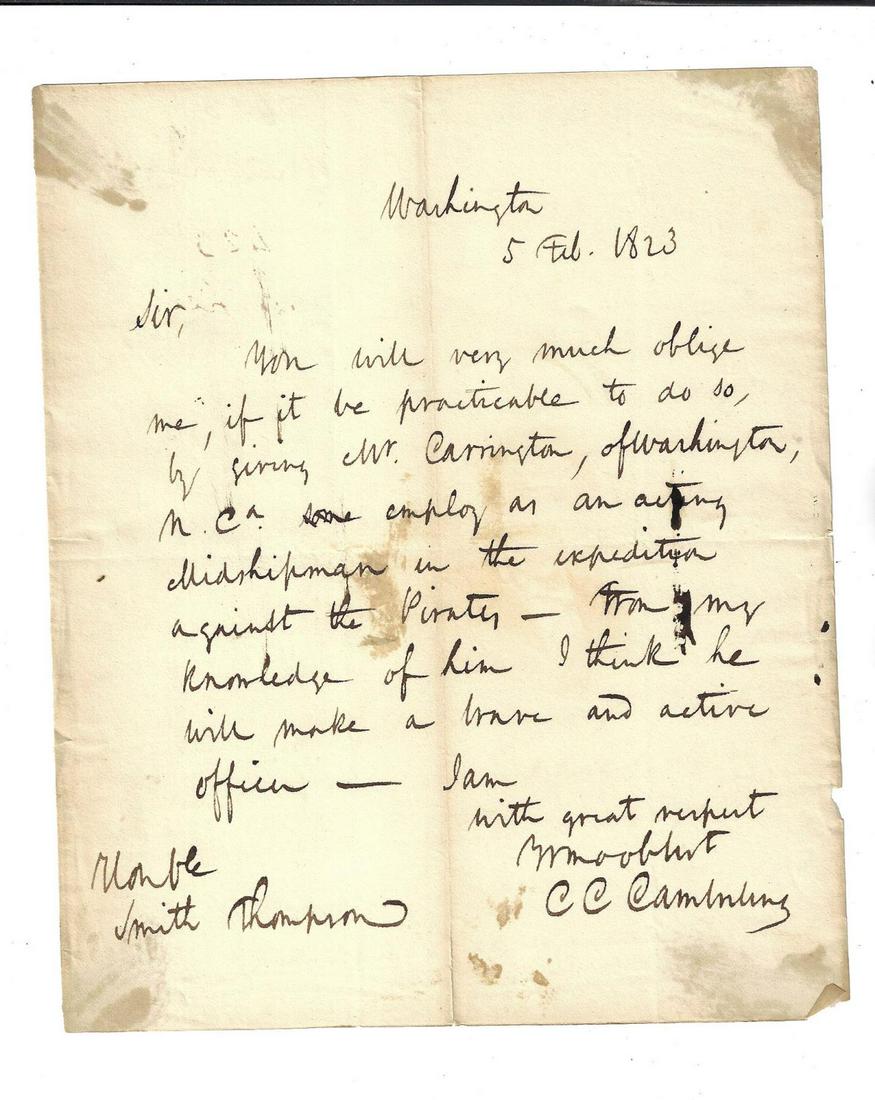 Washington
5 Feb. 1823
Sir,
You will very much oblige
me, if it be practicable to do so,
by giving Mr. Carrington, of Washington,
N. Ca. some employ as an acting
Midshipman in the expedition
against the Pirates — From my
knowledge of him I think he
will make a brave and active
officer — I am
with great respect
C C Cambreleng
Honble
Smith Thompson